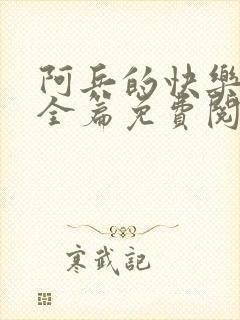 阿兵的快樂
全篇免費閱
寒武記